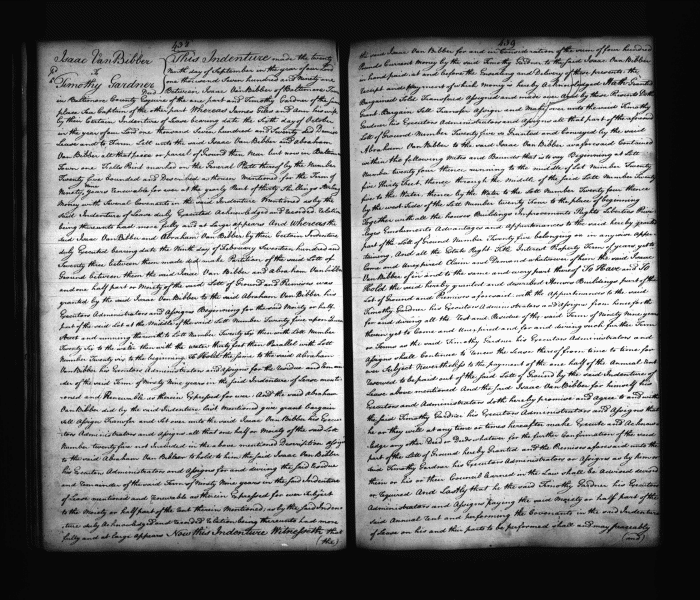 438
Isaac Van Bibber
to
Timothy Gardner
Deed
This Indenture made the twenty
Ninth day of September in the year of our Lord
one thousand Seven hundred and Ninety one
Between Isaac Van Bibber of Baltimore Town
in Baltimore County Esquire of the one part and Timothy Gardner of the same
place Sea Captain of the other part Whereas James
by their Certain Indenture of Lease bearing date the Sixth day of October
in the year of our Lord one thousand Seven hundred and Seventy Did Demise
Lease and to Farm Lett with the said Isaac Van Bibber and Abraham
Van Bibber all that piece or parcel of Ground then and but now in Baltimore
Town on Fells Point marked on the General Platt thereof by the Number
Twenty five bounded and Described as therein Mentioned for the Term of
Ninety nine years renewable for ever at the yearly Rent of thirty Shillings Sterling
Money with Several Covenants in the said Indenture Mentioned as by the
Said Indenture of Lease duly Executed Acknowledged and recorded relation
being thereunto had more fully and at large appears And Whereas the
said Isaac Van Bibber and Abraham Van Bibber by their Certain Indenture
duly Executed bearing date the Ninth day of February Seventeen hundred and
Seventy three between them made did make Partition of the said Lott of
Ground between them the said Isaac Van Bibber and Abraham Van Bibber
and one half part or Moiety of the said Lott of Ground and Premises was
granted by the said Isaac Van Bibber to the said Abraham Van Bibber his
Executors Administrators and Assigns Beginning for the said Moiety or half
part of the said Lot at the Middle of the said Lott Number Twenty five upon
Street and running thence with Lott Number Twenty Six then with Lott Number
Twenty Six to the water then with the water thirty feet then Parallel with Lott
Number Twenty six to the beginning To Hold the same to the said Abraham
Van Bibber his Executors Administrators and Assigns for the residue and remain
der of the said Term of Ninety Nine years in the said Indenture of Lease ment-
ioned and Renewable as therein Expressed for ever And the said Abraham
Van Bibber did by the said Indenture last Mentioned give grant bargain
Sell Assign Transfer and Set over unto the said Isaac Van Bibber his Execu
tors Administrators and Assigns all that one half or Moiety of the said Lott
Number twenty five not included in the above mentioned Description
to the said Abraham Van Bibber to hold to him the said Isaac Van Bibber
his Executors Administrators and Assigns for and during the said Residue
and remainder of the said Term of Ninety Nine years in the said Indenture
of Lease mentioned and renewable as therein Expressed for ever Subject
to the Moiety or half part of the Rent therein Mentioned as by the said Inden
ture duly Acknowledged and recorded relation being thereunto had more
fully and at large appears Now this Indenture Witnesseth that
(the)
439
the said Isaac Van Bibber for and in Consideration of the sum of four hundred
Pounds Current Money by the said Timothy Gardner to the said Isaac Van Bibber
in hand paid at and before the Ensealing and Delivery of these presents the
receipt and payment of which Money is hereby Acknowledged Hath Granted
Bargained Sold Transfered Assigned and Set over and by these Presents Doth
Grant Bargain Sell Transfer Assign and Make over unto the said Timothy
Gardner his Executors Administrators and Assigns all that part of the aforesaid
Lott of Ground Number Twenty five so Granted and Conveyed by the said
Abraham Van Bibber to the said Isaac Van Bibber as aforesaid Contained
within the following Metes and Bounds that is to say Beginning at Lott
Number twenty four thence running to the middle of Lot Number Twenty
five thirty feet thence through the Middle of the said Lott Number Twenty
five to the Water thence by the Water to the Lott Number Twenty four thence
by the west side of the Lott Number Twenty four to the place of beginning
Together with all the houses Buildings Improvements Rights Liberties Privi-
leges Enrichments Advantages and appurtenances to the said hereby granted
part of the Lott of Ground Number Twenty five belonging or in anywise apper
taining And all the Estate Right Title Interest Property Term of years yet to
Come and unexpired Claim and Demand whatsoever of him the said Isaac
Van Bibber of in and to the same and every part thereof To Have and To
Hold the said hereby granted and described Houses Buildings part of the
Lot of Ground and Premises aforesaid with the Appurtenances to the said
Timothy Gardner his Executors Administrators and Assigns from hence forth
for and during all the Rest and Residue of the said Term of Ninety Nine years
thereon yet to Come and Unexpired and for and during such further Term
or Terms as the said Timothy Gardner his Executors Administrators and
Assigns shall Continue to renew the Lease thereof from time to time for
ever Subject Nevertheless to the payment of the one half of the Annual Rent
reserved to be paid out of the said Lott of Ground by the said Indenture of
Lease above mentioned And the said Isaac Van Bibber for himself his
Executors and Administrators doth hereby promise and Agree to and with
the said Timothy Gardner his Executors Administrators and Assigns that
he or they will at any time or times hereafter make Execute and Acknow
ledge any other Deed or Deeds whatever for the further Confirmation of the said
part of the Lott of Ground hereby Granted and the Premises aforesaid unto the
said Timothy Gardner his Executors Administrators or Assigns as by him or
them or his or their Council Learned in the Law shall be Advised devised
or required And Lastly that he the said Timothy Gardner his Executors
Administrators and Assigns paying the said Moiety or half part of the
said Annual Rent and performing the Covenants in the said Indenture
of Lease on his and their parts to be performed shall and may peaceably
(and)